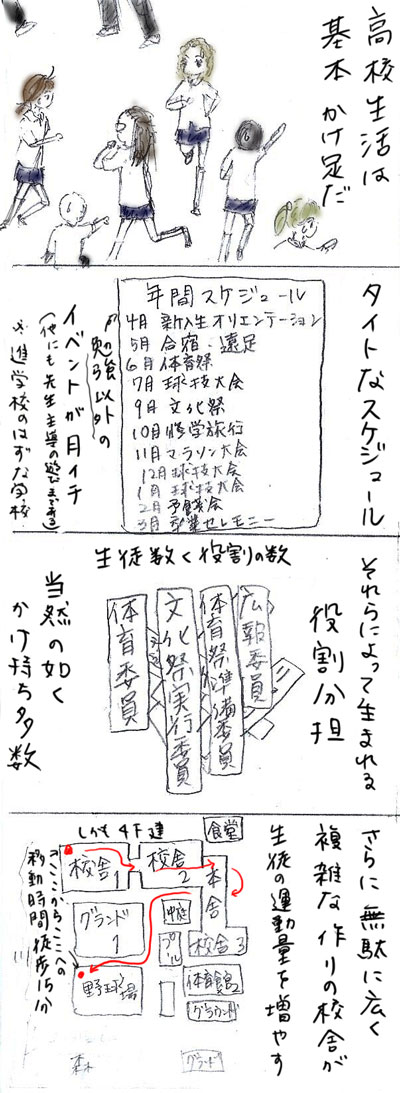 高校生活は
基本 かけ足だ
タイトなスケジュール
年間スケジュール
4月 新入生オリエンテーション
5月 合宿・遠足
6月 体育祭
7月 球技大会
9月 文化祭
10月 修学旅行
11月 マラソン大会
12月 球技大会
1月 球技大会
2月 予餞会
3月 卒業セレモニー
勉強以外の
イベントが月イチ
(他にも先生主導の
※進学校のはずな学校
それらによって生まれる
役割分担
生徒数く役割の数
広報委員
体育祭準備委員
文化祭実行委員
体育委員
当然の如く
かけ持ち多数
さらに無駄に広く
複雑な作りの校舎が
生徒の運動量を増やす
食堂
しかも4F建
校舎1
校舎2
本舎
校舎3
中庭
プール
グランド1
体育館2
野球場
グラウンド
グランド
森
ここからここへの
移動時間徒歩15分